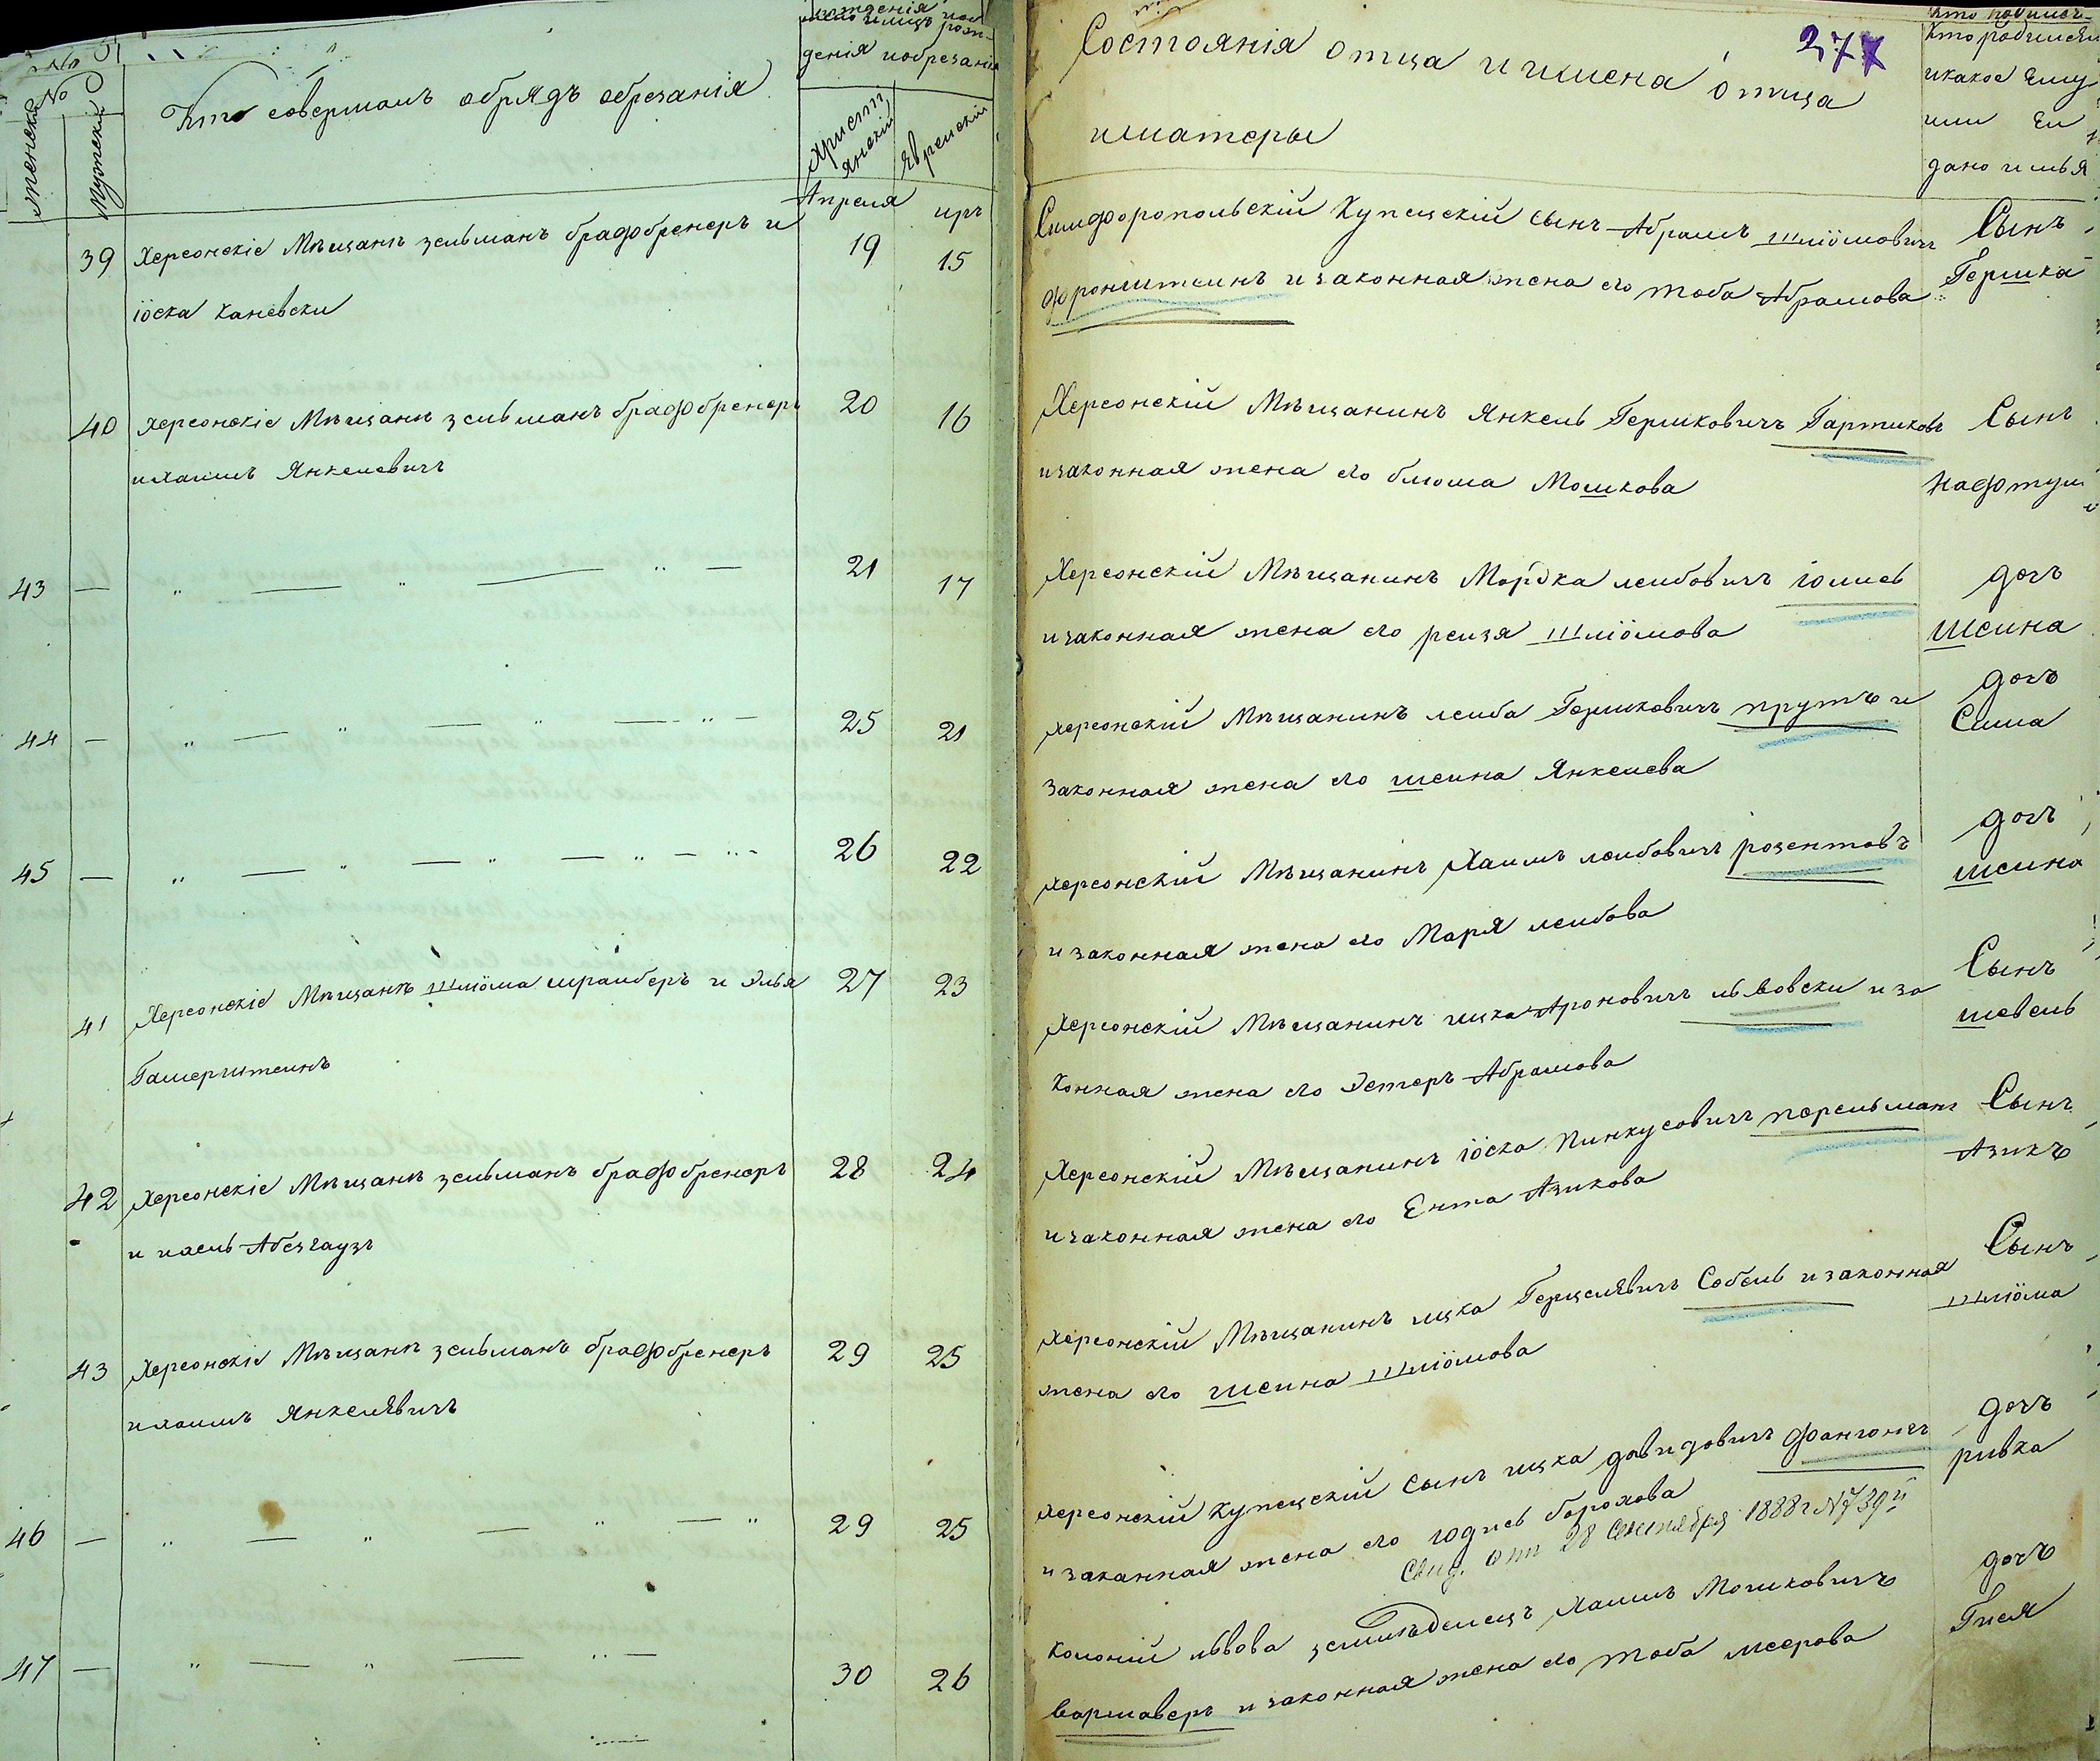 No
женска
мужска
Кто совершалъ обрядъ обрезанія
денія и обрезанія
христіянскій
Еврейскій
Состоянія отца и имена отца
и матеры
277
Кто родился
и какое Ему
или Ей
дано имья
Апреля иръ
39 Херсонскіе Мѣщанъ зельманъ брафбренеръ и 19 15
іоска каневски
Симферопольскій Купецскій сынъ Абрамъ шліомовичъ Сынъ
фронштеинъ и законная жена его тоба Абрамова Гершка
40 Херсонскіе Мѣщанъ зельманъ брафбренеръ 20 16
и хаимъ Янкелевичъ
Херсонскій Мѣщанинъ Янкель Гершковичъ Гартиковъ Сынъ
и законная жена его блюма Мошкова Нафтули
43 — „ — „ — „ — 21 17
Херсонскій Мѣщанинъ Мордка леибовичъ іолисъ дочъ
и законная жена его реизя шліомова шеина
44 — „ — „ — „ — „ — 25 21
херсонскій Мѣщанинъ леиба Гершковичъ прутъ и дочъ
законная жена его шеина Янкелева Сима
45 — „ — „ — „ — „ — 26 22
херсонскій Мѣщанинъ Хаимъ леибовичъ розентовъ дочъ
и законная жена его Маря леибова шеина
41 Херсонскіе Мѣщанъ шліома шраиберъ и Элья 27 23
Гамерштеинъ
Херсонскій Мѣщанинъ ицка Ароновичъ львовски и за Сынъ
конная жена его Эстеръ Абрамова шевель
42 Херсонскіе Мѣщанъ зельманъ брафбренеръ 28 24
и ихель Абезгаузъ
Херсонскій Мѣщанинъ іоска Пинкусовичъ перельманъ Сынъ
и законная жена его Ента Азикова Азикъ
43 Херсонскіе Мѣщанъ зельманъ брафбренеръ 29 25
и хаимъ Янкелевичъ
херсонскій Мѣщанинъ ицка Герцелевичъ Собель и законная Сынъ
жена его шеина шліомова шліома
46 — „ — „ — „ — „ 29 25
херсонскій купецскій сынъ ицка давидовичъ фангонъ дочъ
и заканная жена его юдисъ борохова ривка
Свид. отъ 28 Сентября 1888 г N 739й
47 — „ — „ — „ — 30 26
Колоніи львова земледелецъ Хаимъ Мошковичъ дочъ
варшаверъ и законная жена его тоба меерова Гися